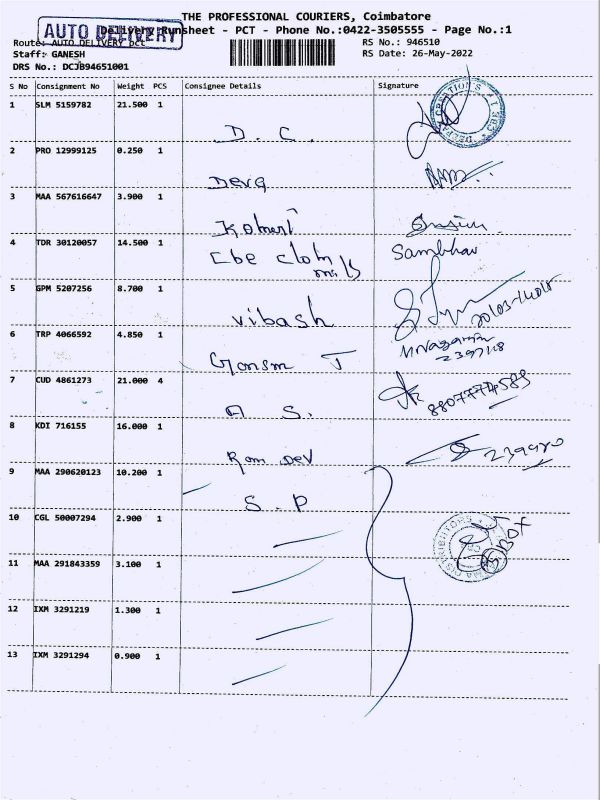 THE PROFESSIONAL COURIERS, Coimbatore
Delivery Runsheet - PCT - Phone No.:0422-3505555 - Page No.:1
AUTO DELIVERY
Route: AUTO DELIVERY pct
RS No.: 946510
Staff: GANESH
RS Date: 26-May-2022
DRS No.: DCJB94651001
S No Consignment No Weight PCS Consignee Details Signature
1 SLM 5159782 21.500 1
D. C.
2 PRO 12999125 0.250 1
Deva
3 MAA 567616647 3.900 1
4 TDR 30120057 14.500 1
Cbe cloth Sambhav
mills
5 GPM 5207256 8.700 1
Vibash
6 TRP 4066592 4.850 1
7 CUD 4861273 21.000 4
A S.
8 KDI 716155 16.000 1
Ram Dev
9 MAA 290620123 10.200 1
S. P
10 CGL 50007294 2.900 1
11 MAA 291843359 3.100 1
12 IXM 3291219 1.300 1
13 IXM 3291294 0.900 1